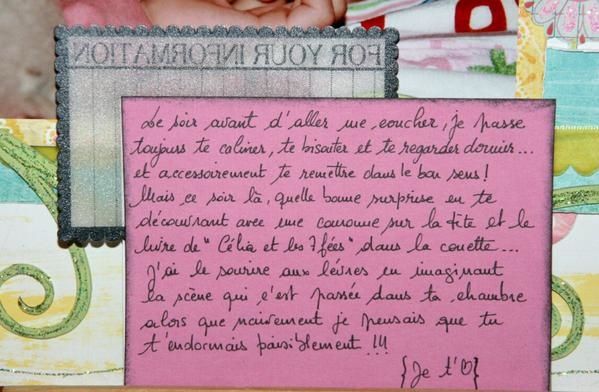 FOR YOUR INFORMATION
Le soir avant d'aller me coucher, je passe
toujours te caliner, te bisoiter et te regarder dormir...
et accessoirement te remettre dans le bon sens !
Mais ce soir là, quelle bonne surprise en te
découvrant avec une couronne sur la tête et le
livre de "Célia et les 7 fées" dans la couette...
J'ai le sourire aux lèvres en imaginant
la scène qui s'est passée dans ta chambre
alors que naïvement je pensais que tu
t'endormais paisiblement !!!
{Je t'♡}